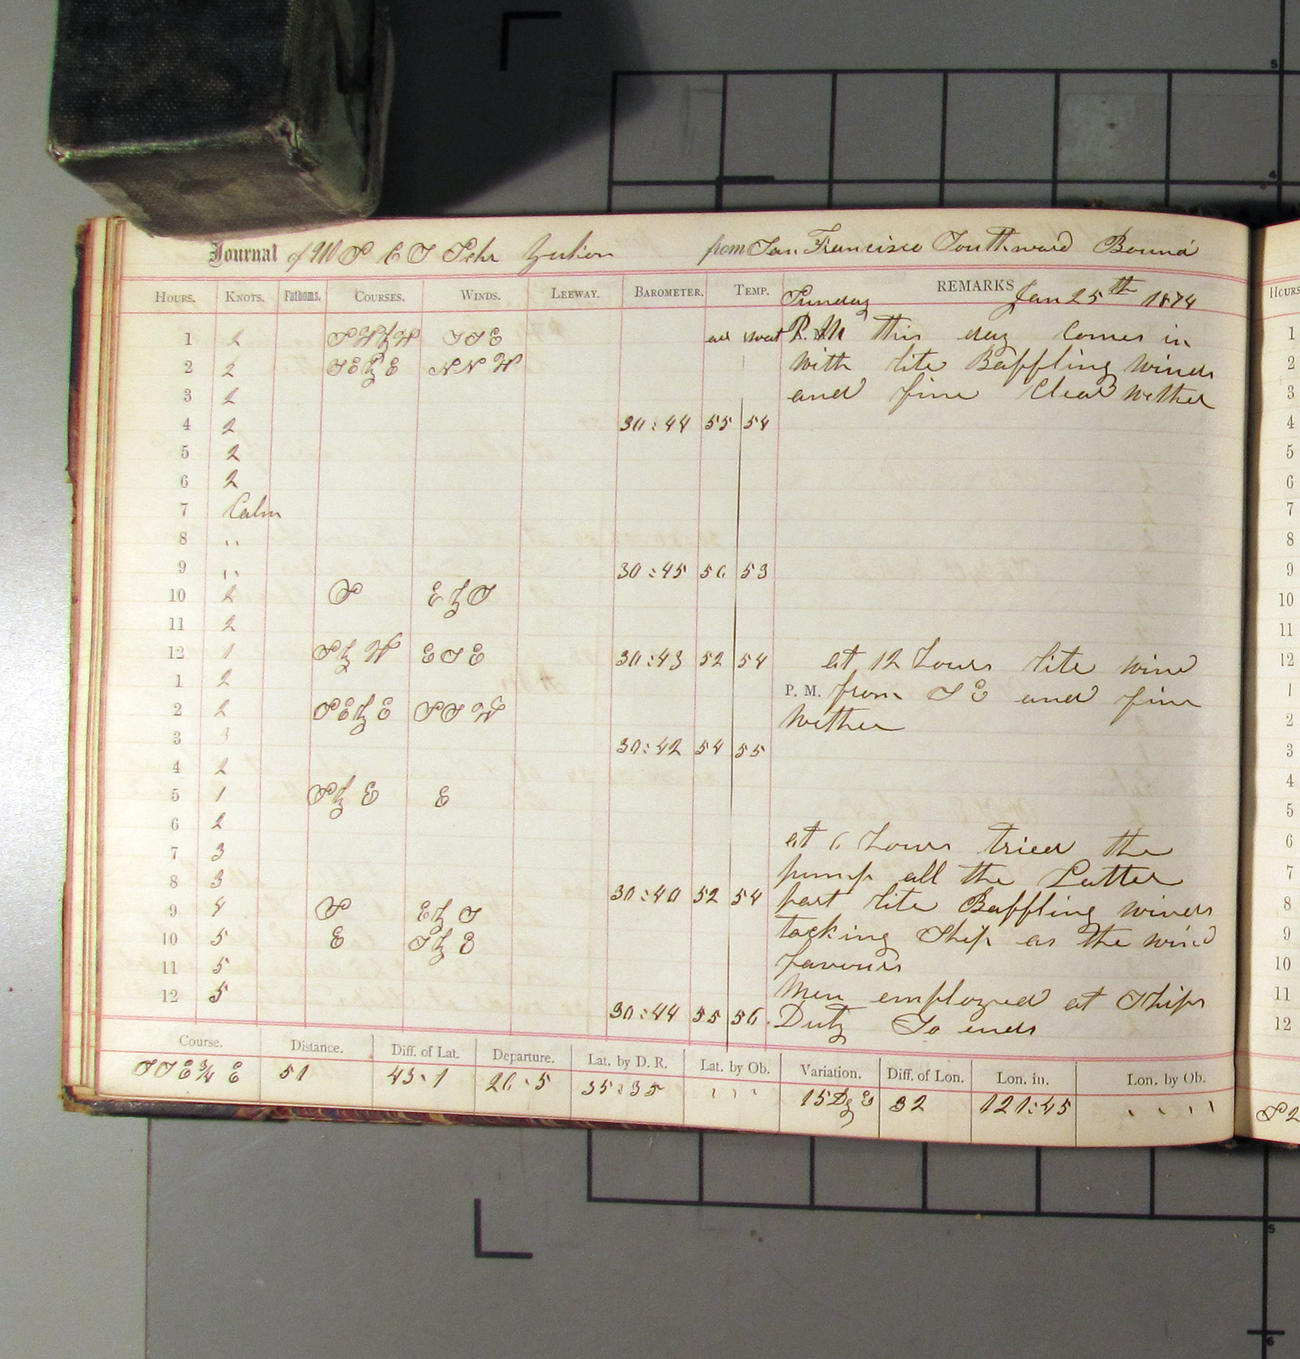 Journal of U S C S Schr Yukon from San Francisco Southward Bound
Hours. Knots. Fathoms. Courses. Winds. Leeway. Barometer. Temp. REMARKS
Sunday Jan 25th 1874
1 2 SWbW SSE P. M this day Comes in
2 2 SEbE NNW with lite Baffling winds
3 2 and fine Clear wether
4 2 30:44 55 54
5 2
6 2
7 Calm
8 ,,
9 ,, 30:45 56 53
10 2 S EbS
11 2
12 1 SbW ESE 30:43 52 54 at 12 hours lite wind
1 2 P. M. from SE and fine
2 2 SEbE SSW wether
3 3 30:42 54 55
4 2
5 1 SbE E
6 2 at 6 hours tried the
7 3 pump all the Latter
8 3 30:40 52 54 part lite Baffling winds
9 4 S EbS tacking Ship as the wind
10 5 E SbE favours
11 5 Men employed at Ships
12 5 30:44 55 56 Duty So ends
Course. Distance. Diff. of Lat. Departure. Lat. by D. R. Lat. by Ob. Variation. Diff. of Lon. Lon. in. Lon. by Ob.
SSE 3/4 E 51 43.1 26.5 35:35 ,,, 15Dg E 32 121:45 ,,,,
Hours
1
2
3
4
5
6
7
8
9
10
11
12
1
2
3
4
5
6
7
8
9
10
11
12
S 2
5
4
5
6